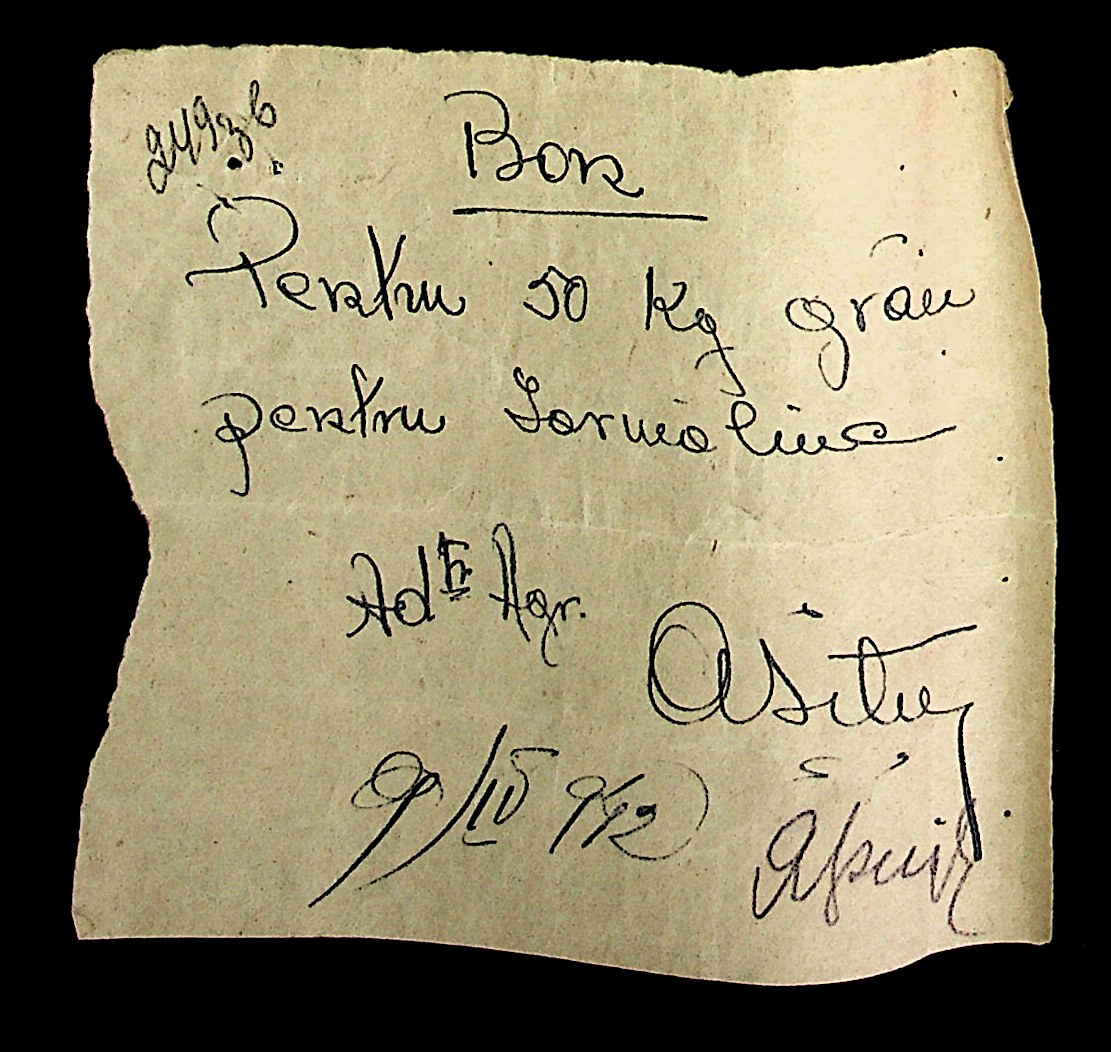 24936
Bon
Pentru 50 Kg grâu
pentru Formalina
Ad Agr.
9/IV 942